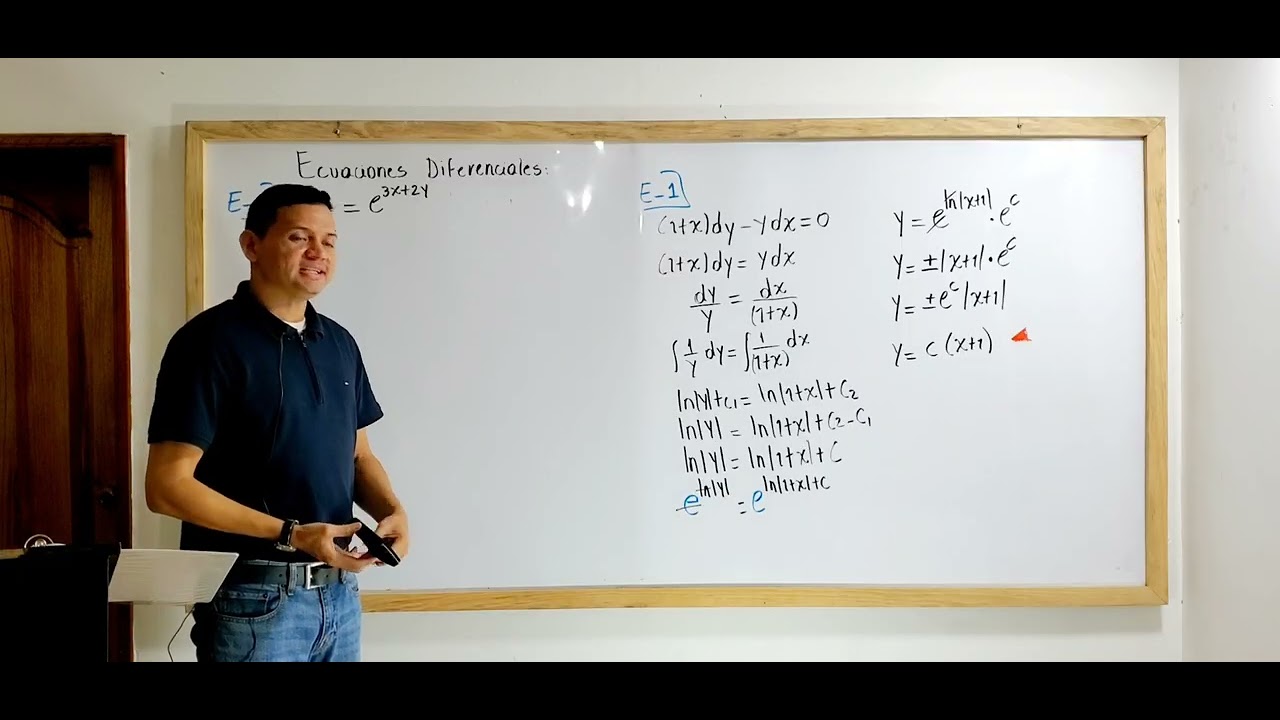 Ecuaciones Diferenciales:
E-
= e^{3x+2y}
E-1
(1+x)dy-ydx=0
(1+x)dy=ydx
dy/y = dx/(1+x)
∫1/y dy=∫1/(1+x) dx
ln|y|+c₁=ln|1+x|+C₂
ln|y|=ln|1+x|+C₂-C₁
ln|y|=ln|1+x|+C
e^{ln|y|}=e^{ln|1+x|+C}
y=e^{ln|x+1|}·e^c
y=±|x+1|·e^c
y=±e^c|x+1|
y=c(x+1)